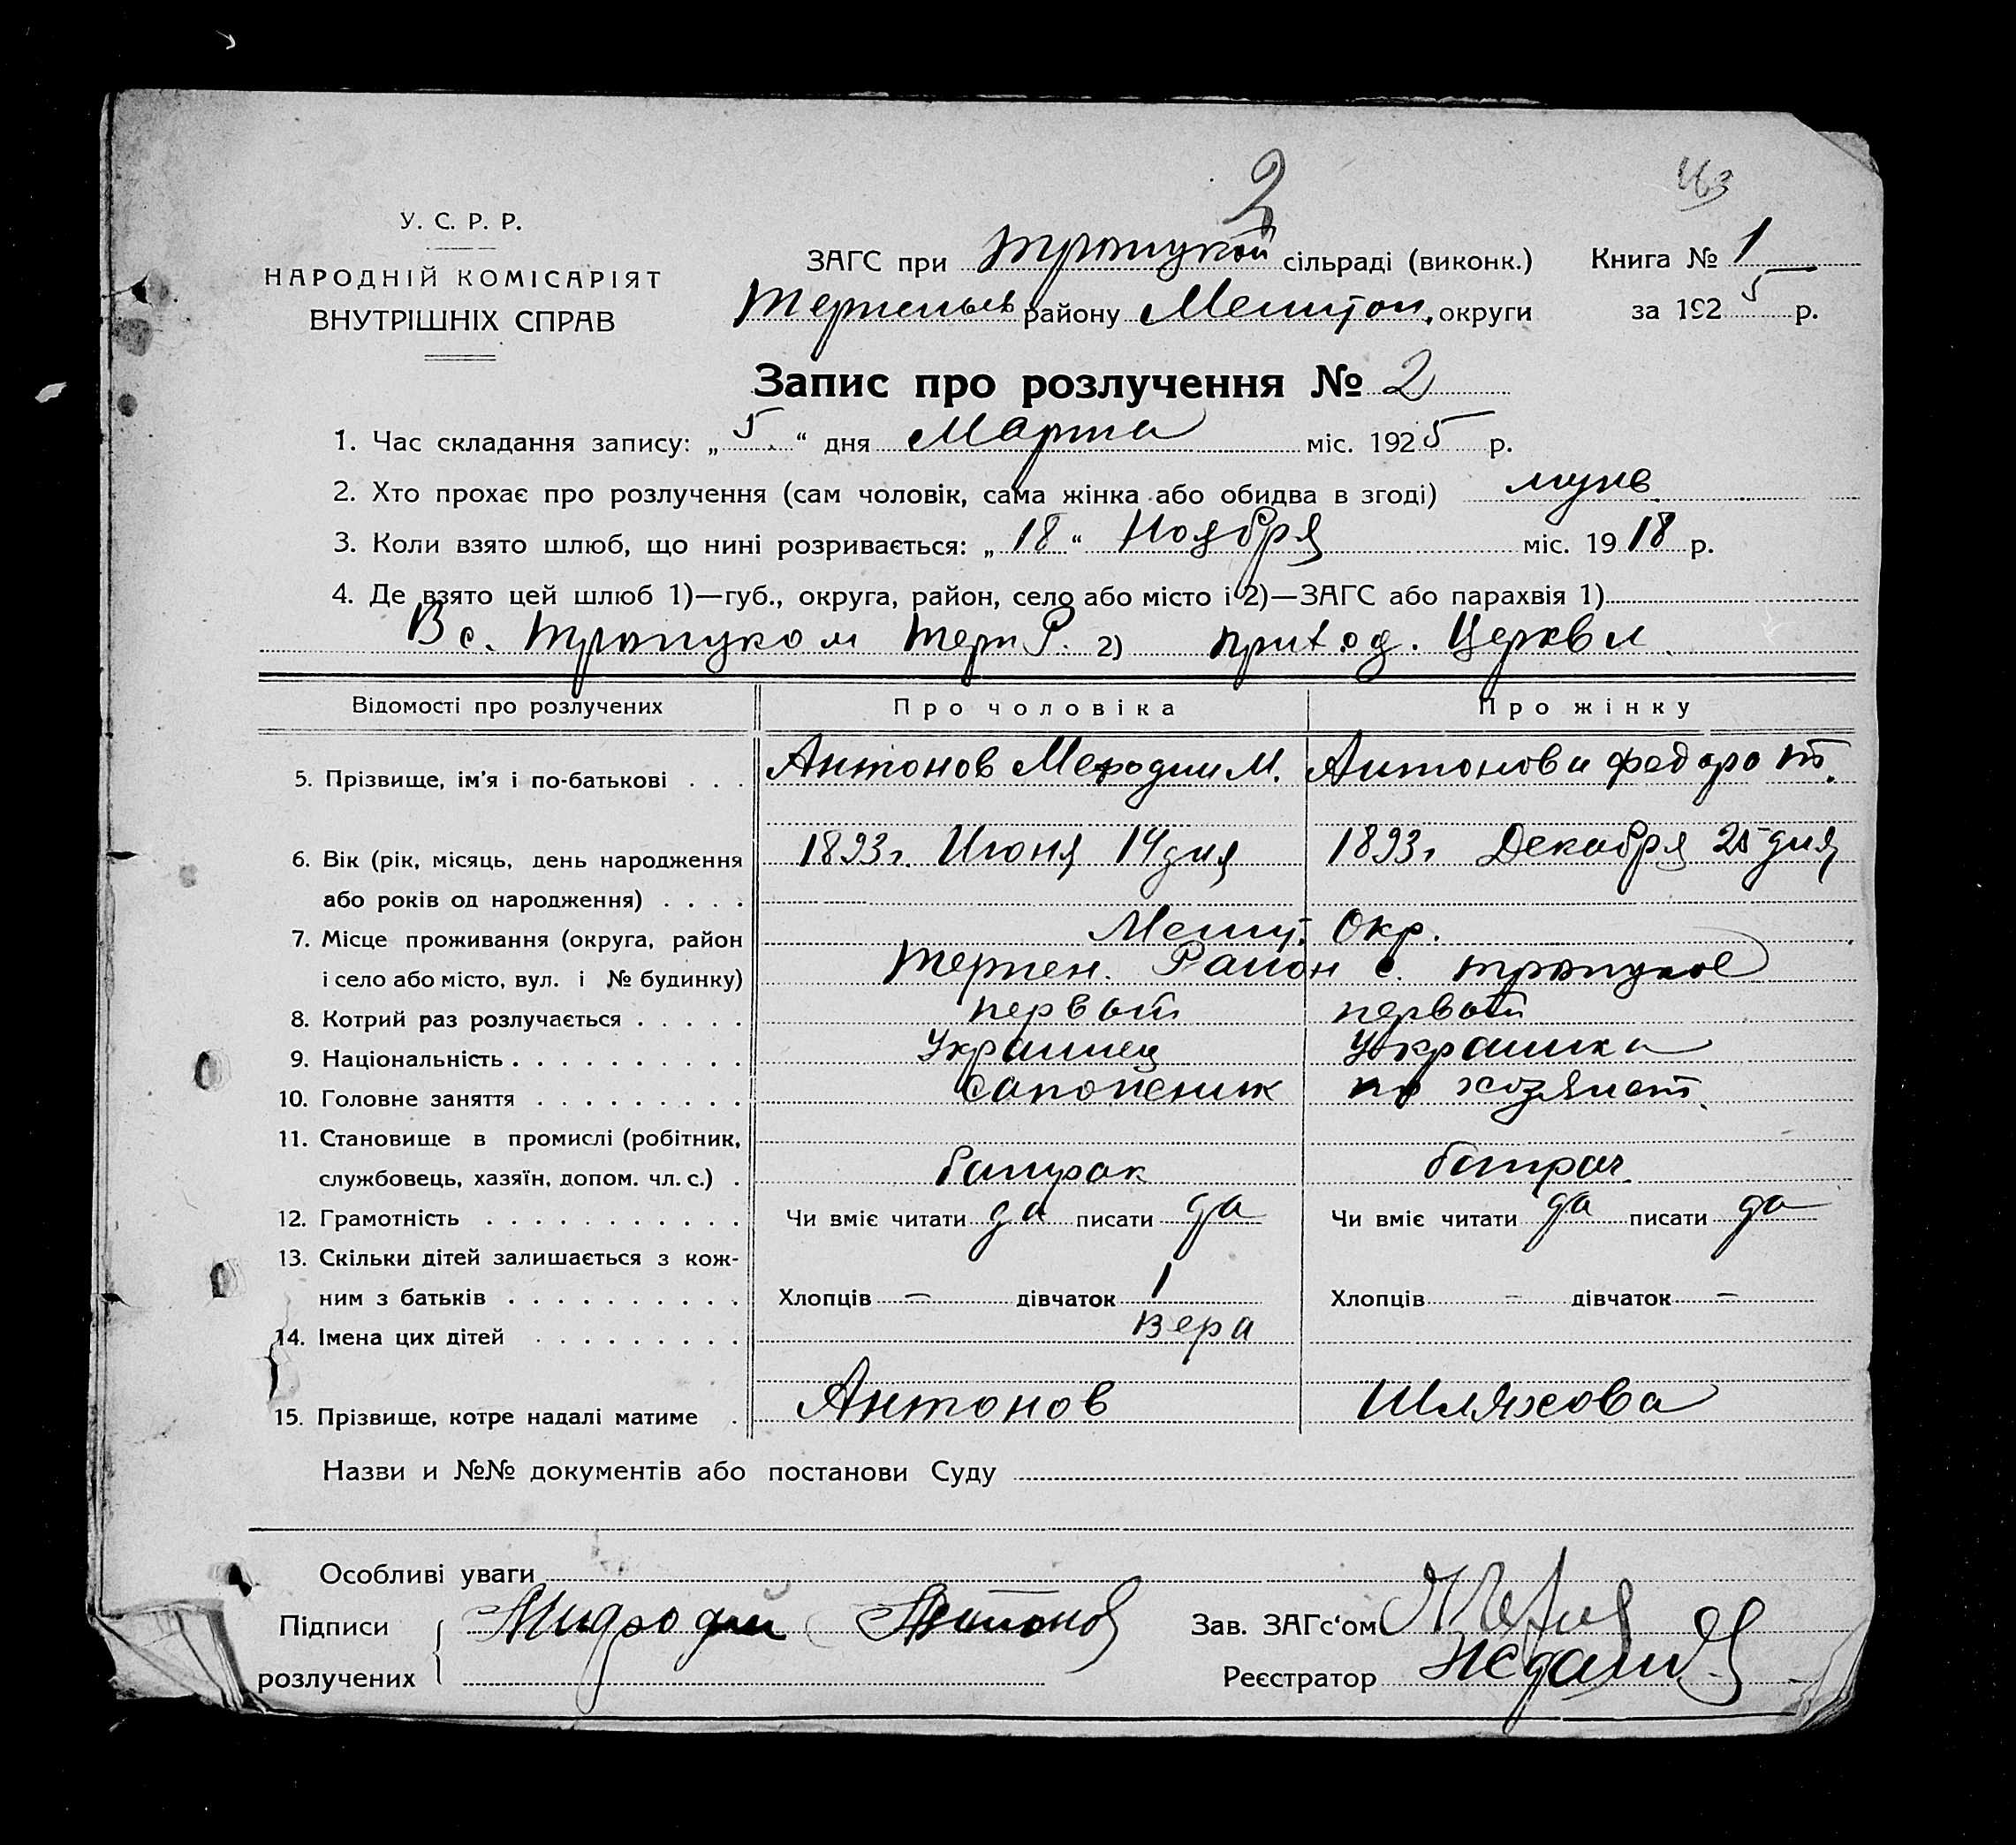 2
163
У. С. Р. Р.
НАРОДНІЙ КОМІСАРІЯТ
ВНУТРІШНІХ СПРАВ
ЗАГС при Троицкой сільраді (виконк.) Книга № 1
Терпеньев району Мелитоп. округи за 1925 р.
Запис про розлучення № 2
1. Час складання запису: „5“ дня Марта міс. 1925 р.
2. Хто прохає про розлучення (сам чоловік, сама жінка або обидва в згоді) мужъ
3. Коли взято шлюб, що нині розривається: „18“ Ноября міс. 1918 р.
4. Де взято цей шлюб 1)—губ., округа, район, село або місто і 2)—ЗАГС або парахвія 1)
В с. Троицком Терп Р. 2) приход. Церкви.
Відомості про розлучених Про чоловіка Про жінку
5. Прізвище, ім'я і по-батькові . . . Антонов Мефодии М. Антонова Федора Т.
6. Вік (рік, місяць, день народження 1893 г. Июня 14 дня 1893 г Декабря 25 дня
або років од народження) . . . .
7. Місце проживання (округа, район Мелит. Окр.
і село або місто, вул. і № будинку) Терпен. Район с. Троицкое
8. Котрий раз розлучається . . . . . первый первый
9. Національність . . . . . . . . . . Украинец Украинка
10. Головне заняття . . . . . . . . . сапожник по хозяист.
11. Становище в промислі (робітник,
службовець, хазяїн, допом. чл. с.) . батрак батрач.
12. Грамотність . . . . . . . . . . . Чи вміє читати да писати да Чи вміє читати да писати да
13. Скільки дітей залишається з кож-
ним з батьків . . . . . . . . . . Хлопців — дівчаток 1 Хлопців — дівчаток —
14. Імена цих дітей . . . . . . . . . Вера
15. Прізвище, котре надалі матиме . Антонов Шляхова
Назви и №№ документів або постанови Суду
Особливі уваги
Підписи Антонов Зав. ЗАГс‘ом
розлучених Реєстратор